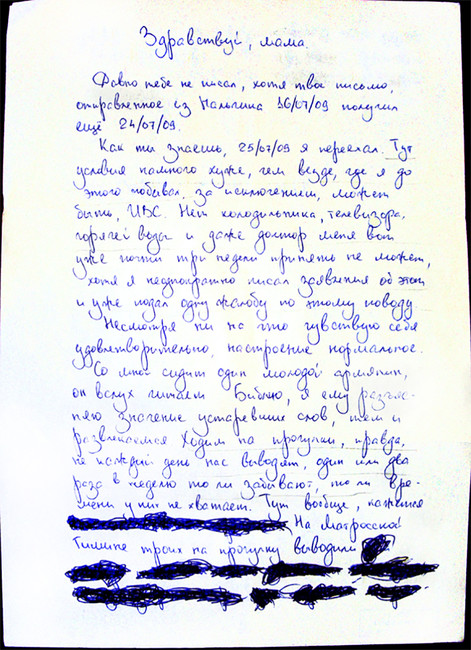 Здравствуй, мама.
Давно тебе не писал, хотя твоё письмо,
отправленное из Нальчика 16/07/09 получил
ещё 24/07/09.
Как ты знаешь, 25/07/09 я переехал. Тут
условия намного хуже, чем везде, где я до
этого побывал, за исключением, может
быть, ИВС. Нет холодильника, телевизора,
горячей воды и даже доктор меня вот
уже почти три недели принять не может,
хотя я неоднократно писал заявления об этом
и уже подал одну жалобу по этому поводу
Несмотря ни на что чувствую себя
удовлетворительно, настроение нормальное.
Со мной сидит один молодой армянин,
он вслух читает Библию, я ему разъяс-
няю значение устаревших слов, тем и
развлекаемся. Ходим на прогулки, правда,
не каждый день нас выводят, один или два
раза в неделю то ли забывают, то ли вре-
мени у них не хватает. Тут вообще, кажется
На Матросской
Тишине троих на прогулку выводили